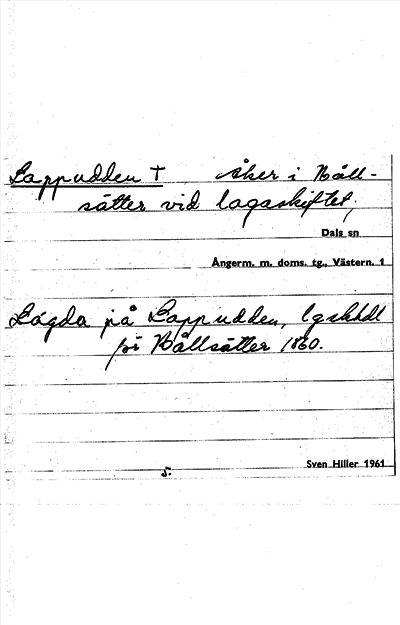 Lappudden † åker i Båll-
sätter vid lagaskiftet,
Dals sn
Ångerm. m. doms. tg., Västern. 1
Lägda på Lappudden, lgskhdl
för Bållsätter 1860.
Sven Hiller 1961
5.